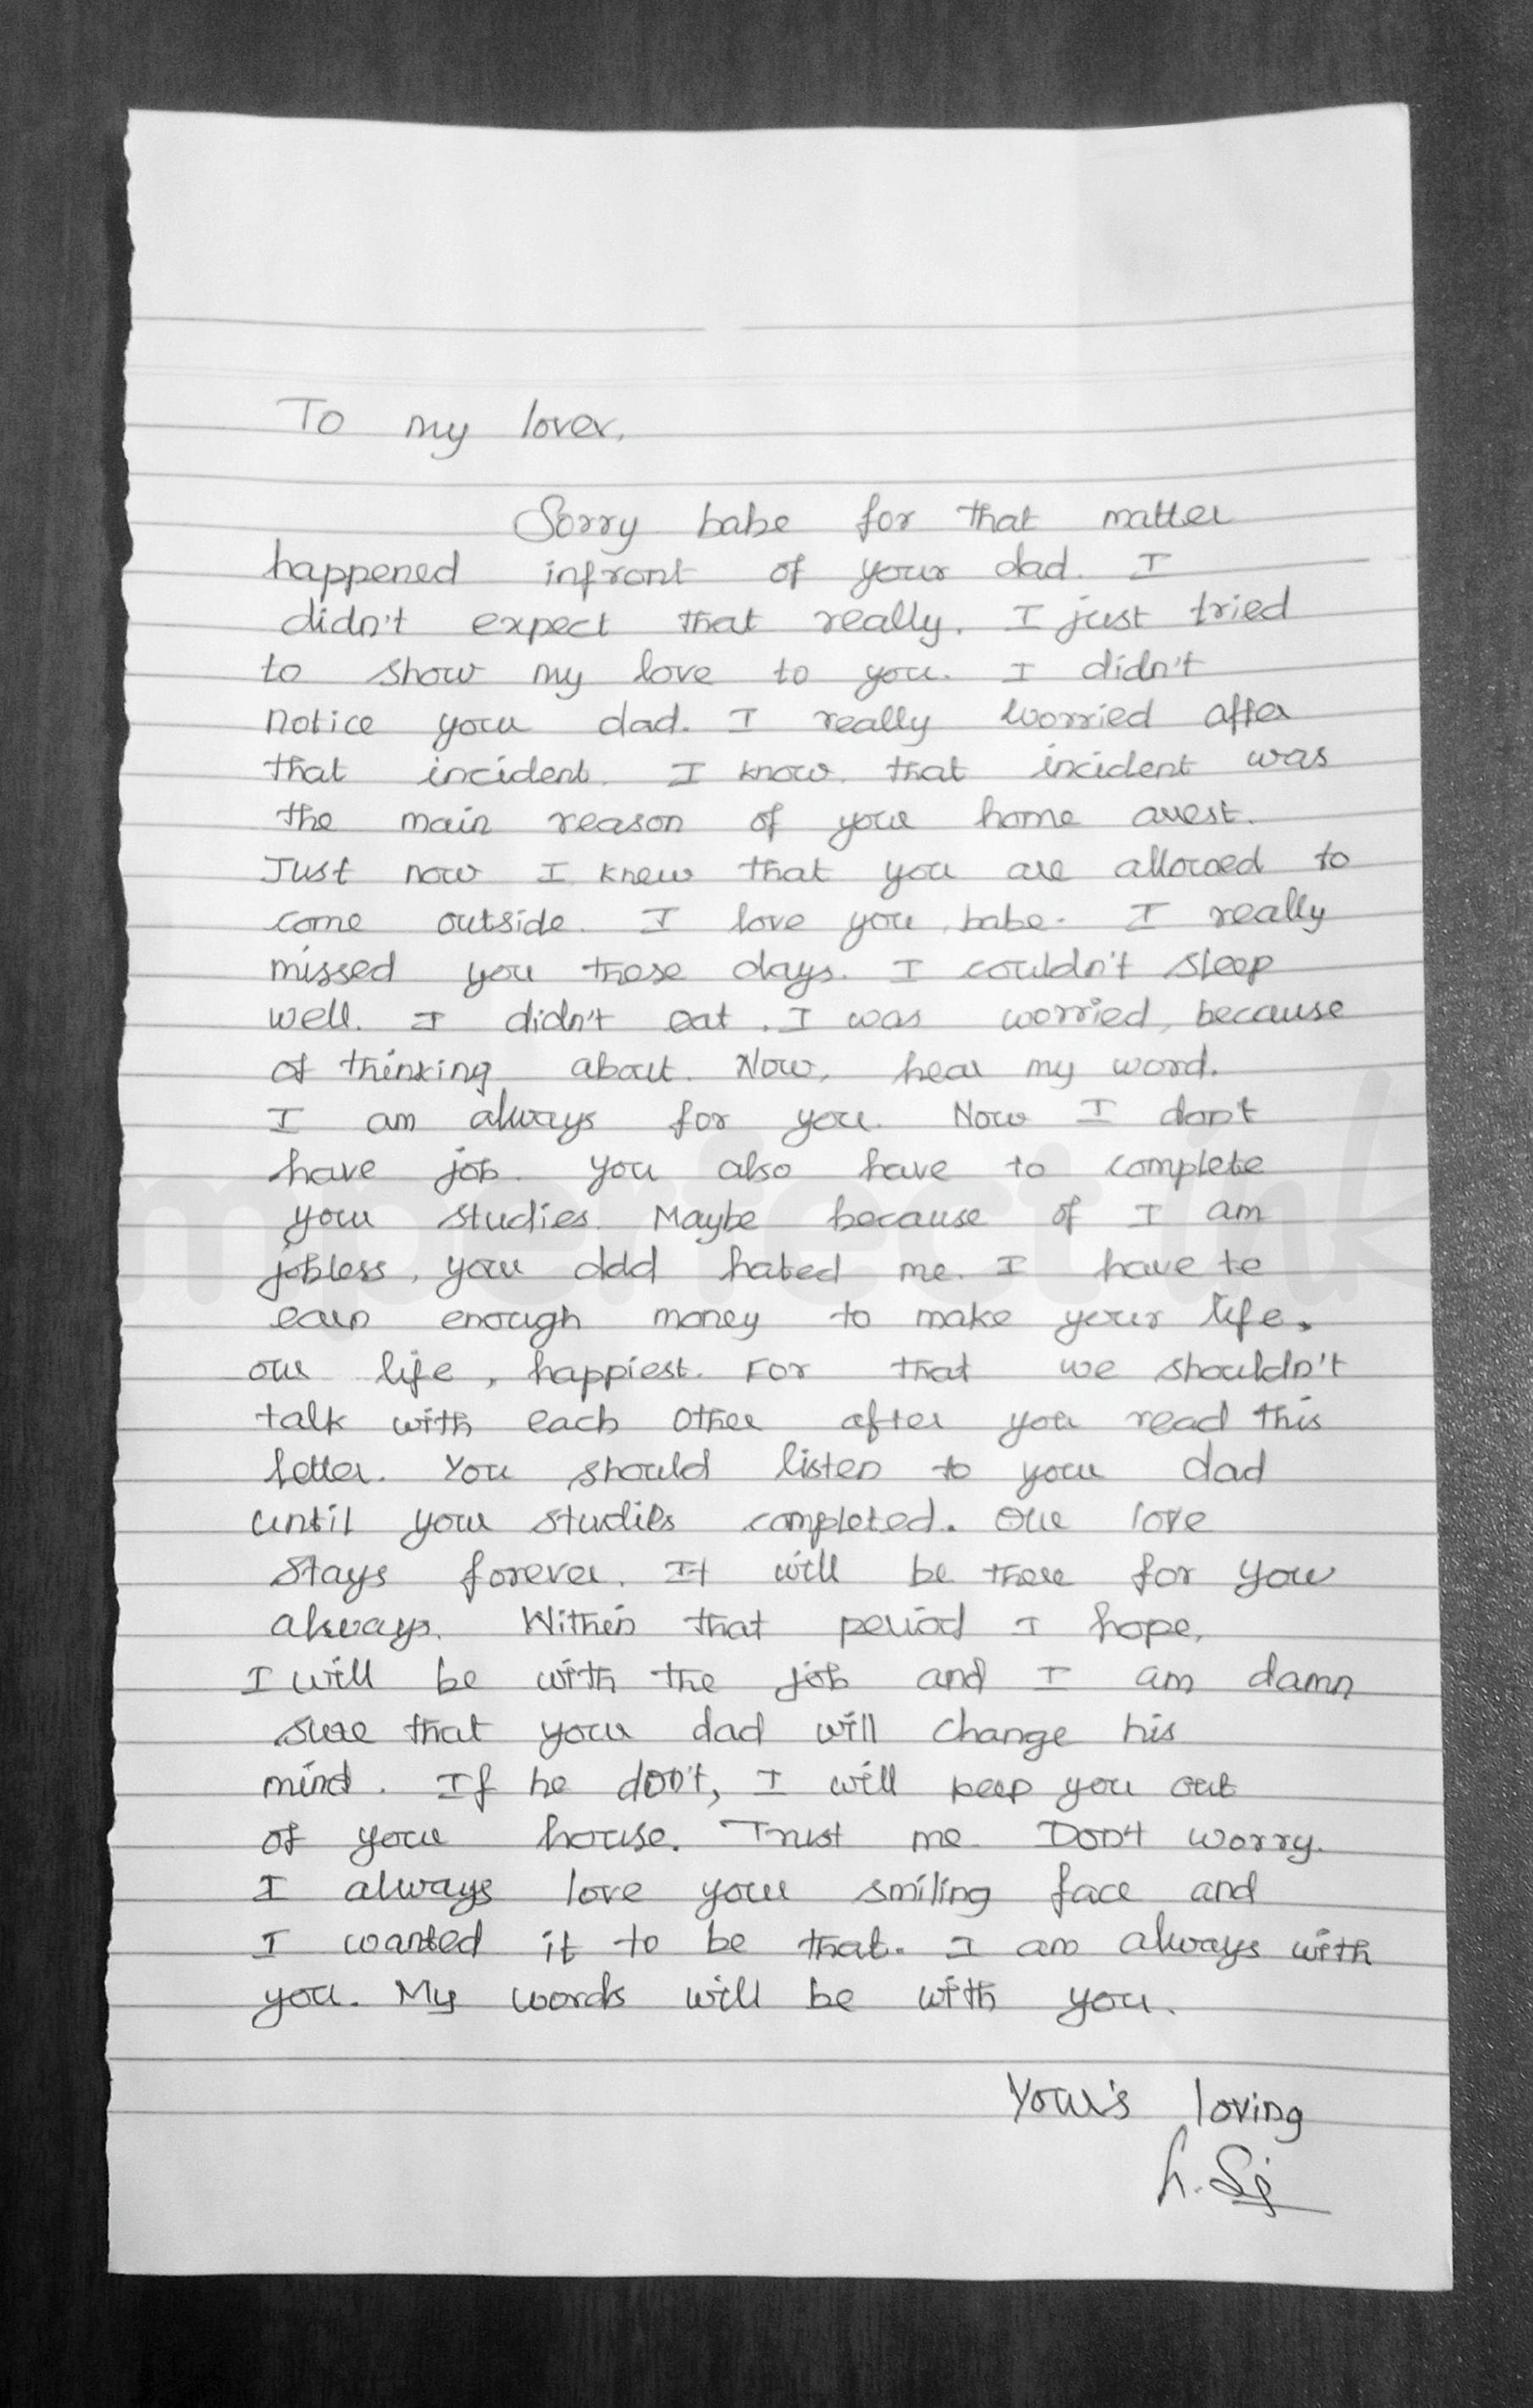 To my lover,
Sorry babe for that matter
happened infront of your dad. I
didn't expect that really. I just tried
to show my love to you. I didn't
notice your dad. I really worried after
that incident. I know that incident was
the main reason of your home arest.
Just now I knew that you are allowed to
come outside. I love you babe. I really
missed you those days. I couldn't sleep
well. I didn't eat. I was worried, because
of thinking about. Now, hear my word.
I am always for you. Now I don't
have job. You also have to complete
your studies. Maybe because of I am
jobless, your ddd hated me. I have to
earn enough money to make your life,
our life, happiest. For that we shouldn't
talk with each other after you read this
letter. You should listen to your dad
until your studies completed. Our love
stays forever. It will be there for you
always. Within that period I hope,
I will be with the job and I am damn
sure that your dad will change his
mind. If he don't, I will keep you out
of your house. Trust me. Don't worry.
I always love your smiling face and
I wanted it to be that. I am always with
you. My words will be with you.
Your's loving